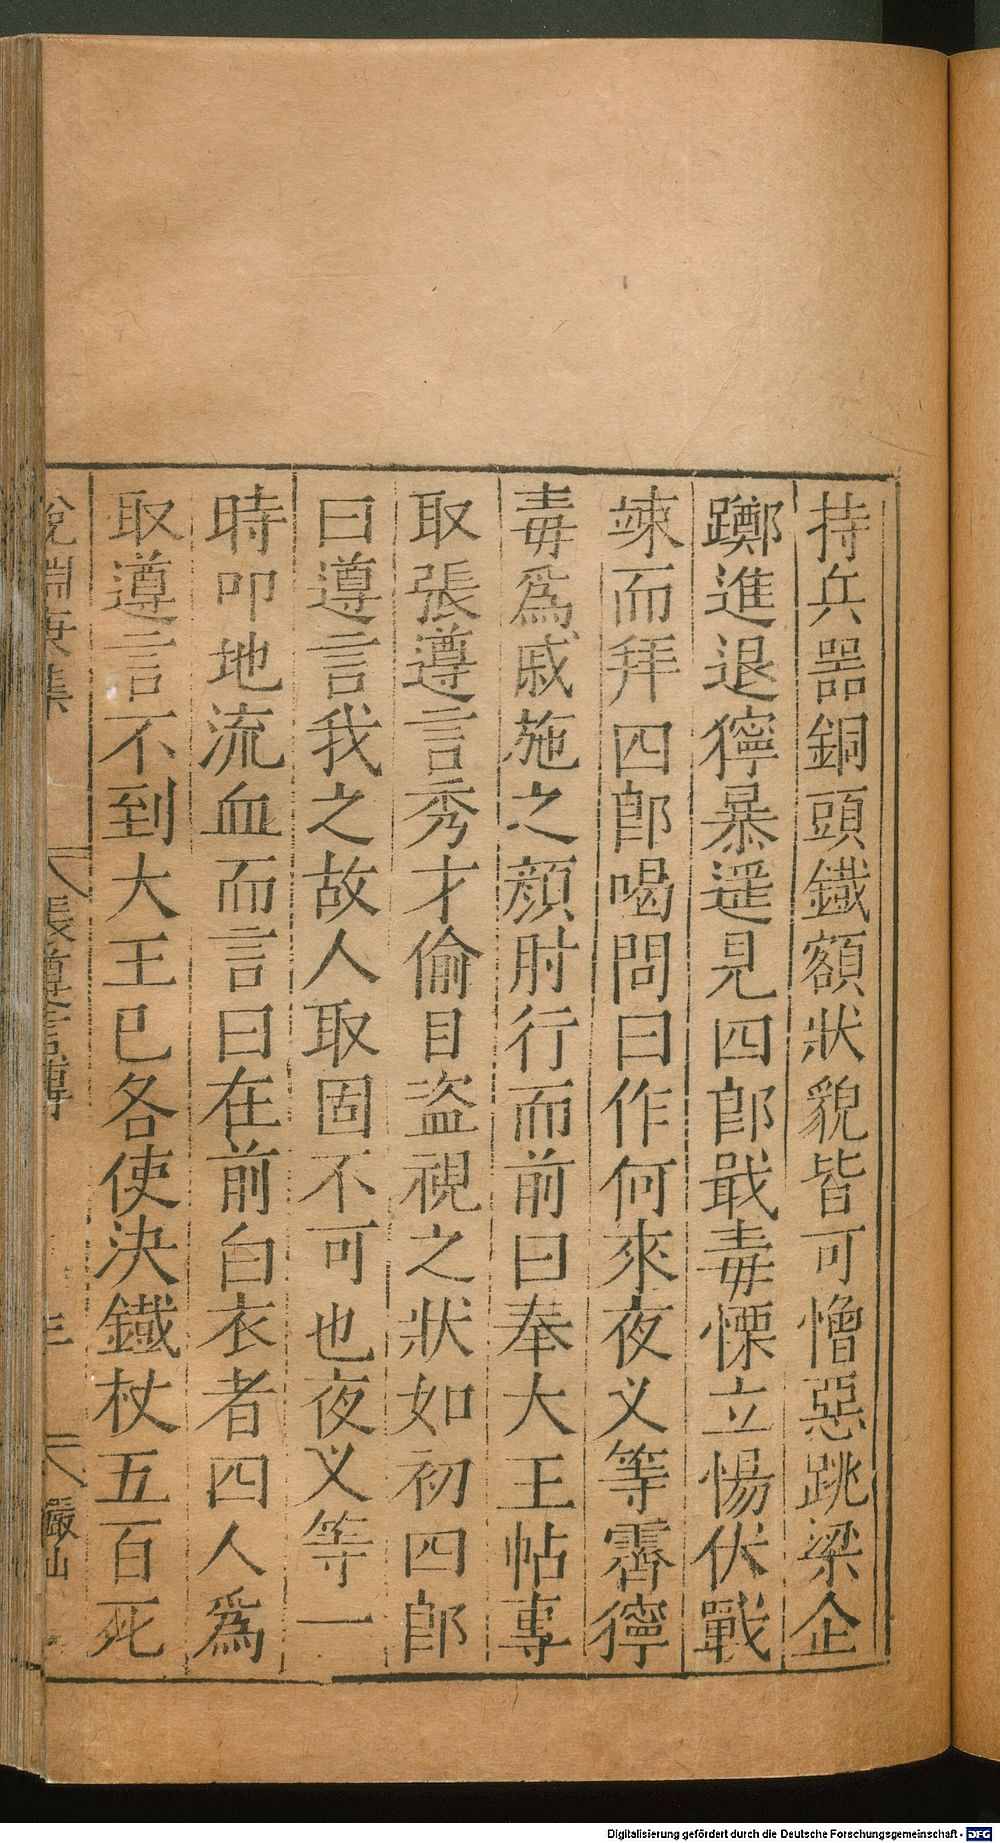 持兵器銅頭鐵額狀貌皆可憎惡跳梁企
躑進退獰暴遥見四郎戢毒慄立惕伏戰
竦而拜四郎喝問曰作何來夜乂等霽獰
毒爲戚施之顏肘行而前曰奉大王帖專
取張遵言秀才偷目盜視之狀如初四郎
曰遵言我之故人取固不可也夜乂等一
時叩地流血而言曰在前白衣者四人爲
取遵言不到大王已各使決鐵杖五百死
說淵庚集 張遵言傳 三 儼山
Digitalisierung gefördert durch die Deutsche Forschungsgemeinschaft - DFG